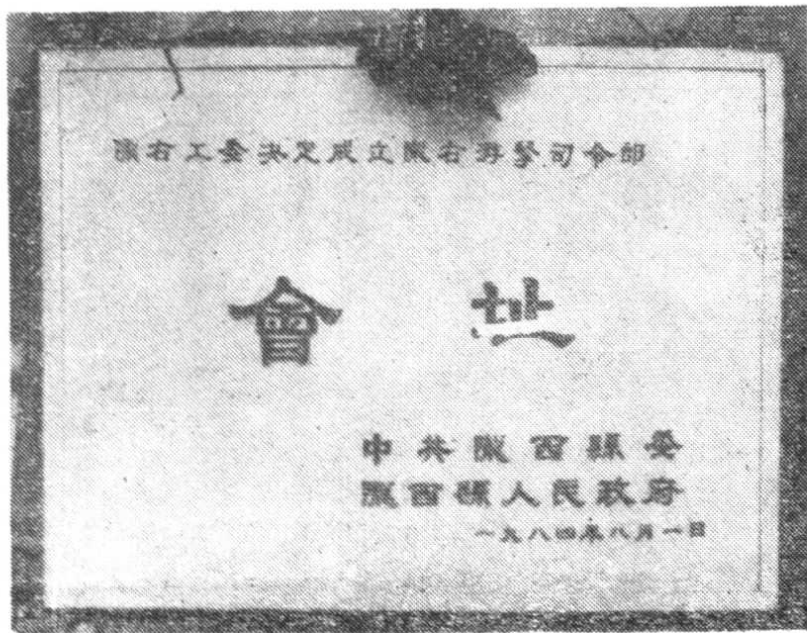 陇右工委决定成立陇右游擊司令部
會址
中共陇西縣委
陇西縣人民政府
一九八四年八月一日